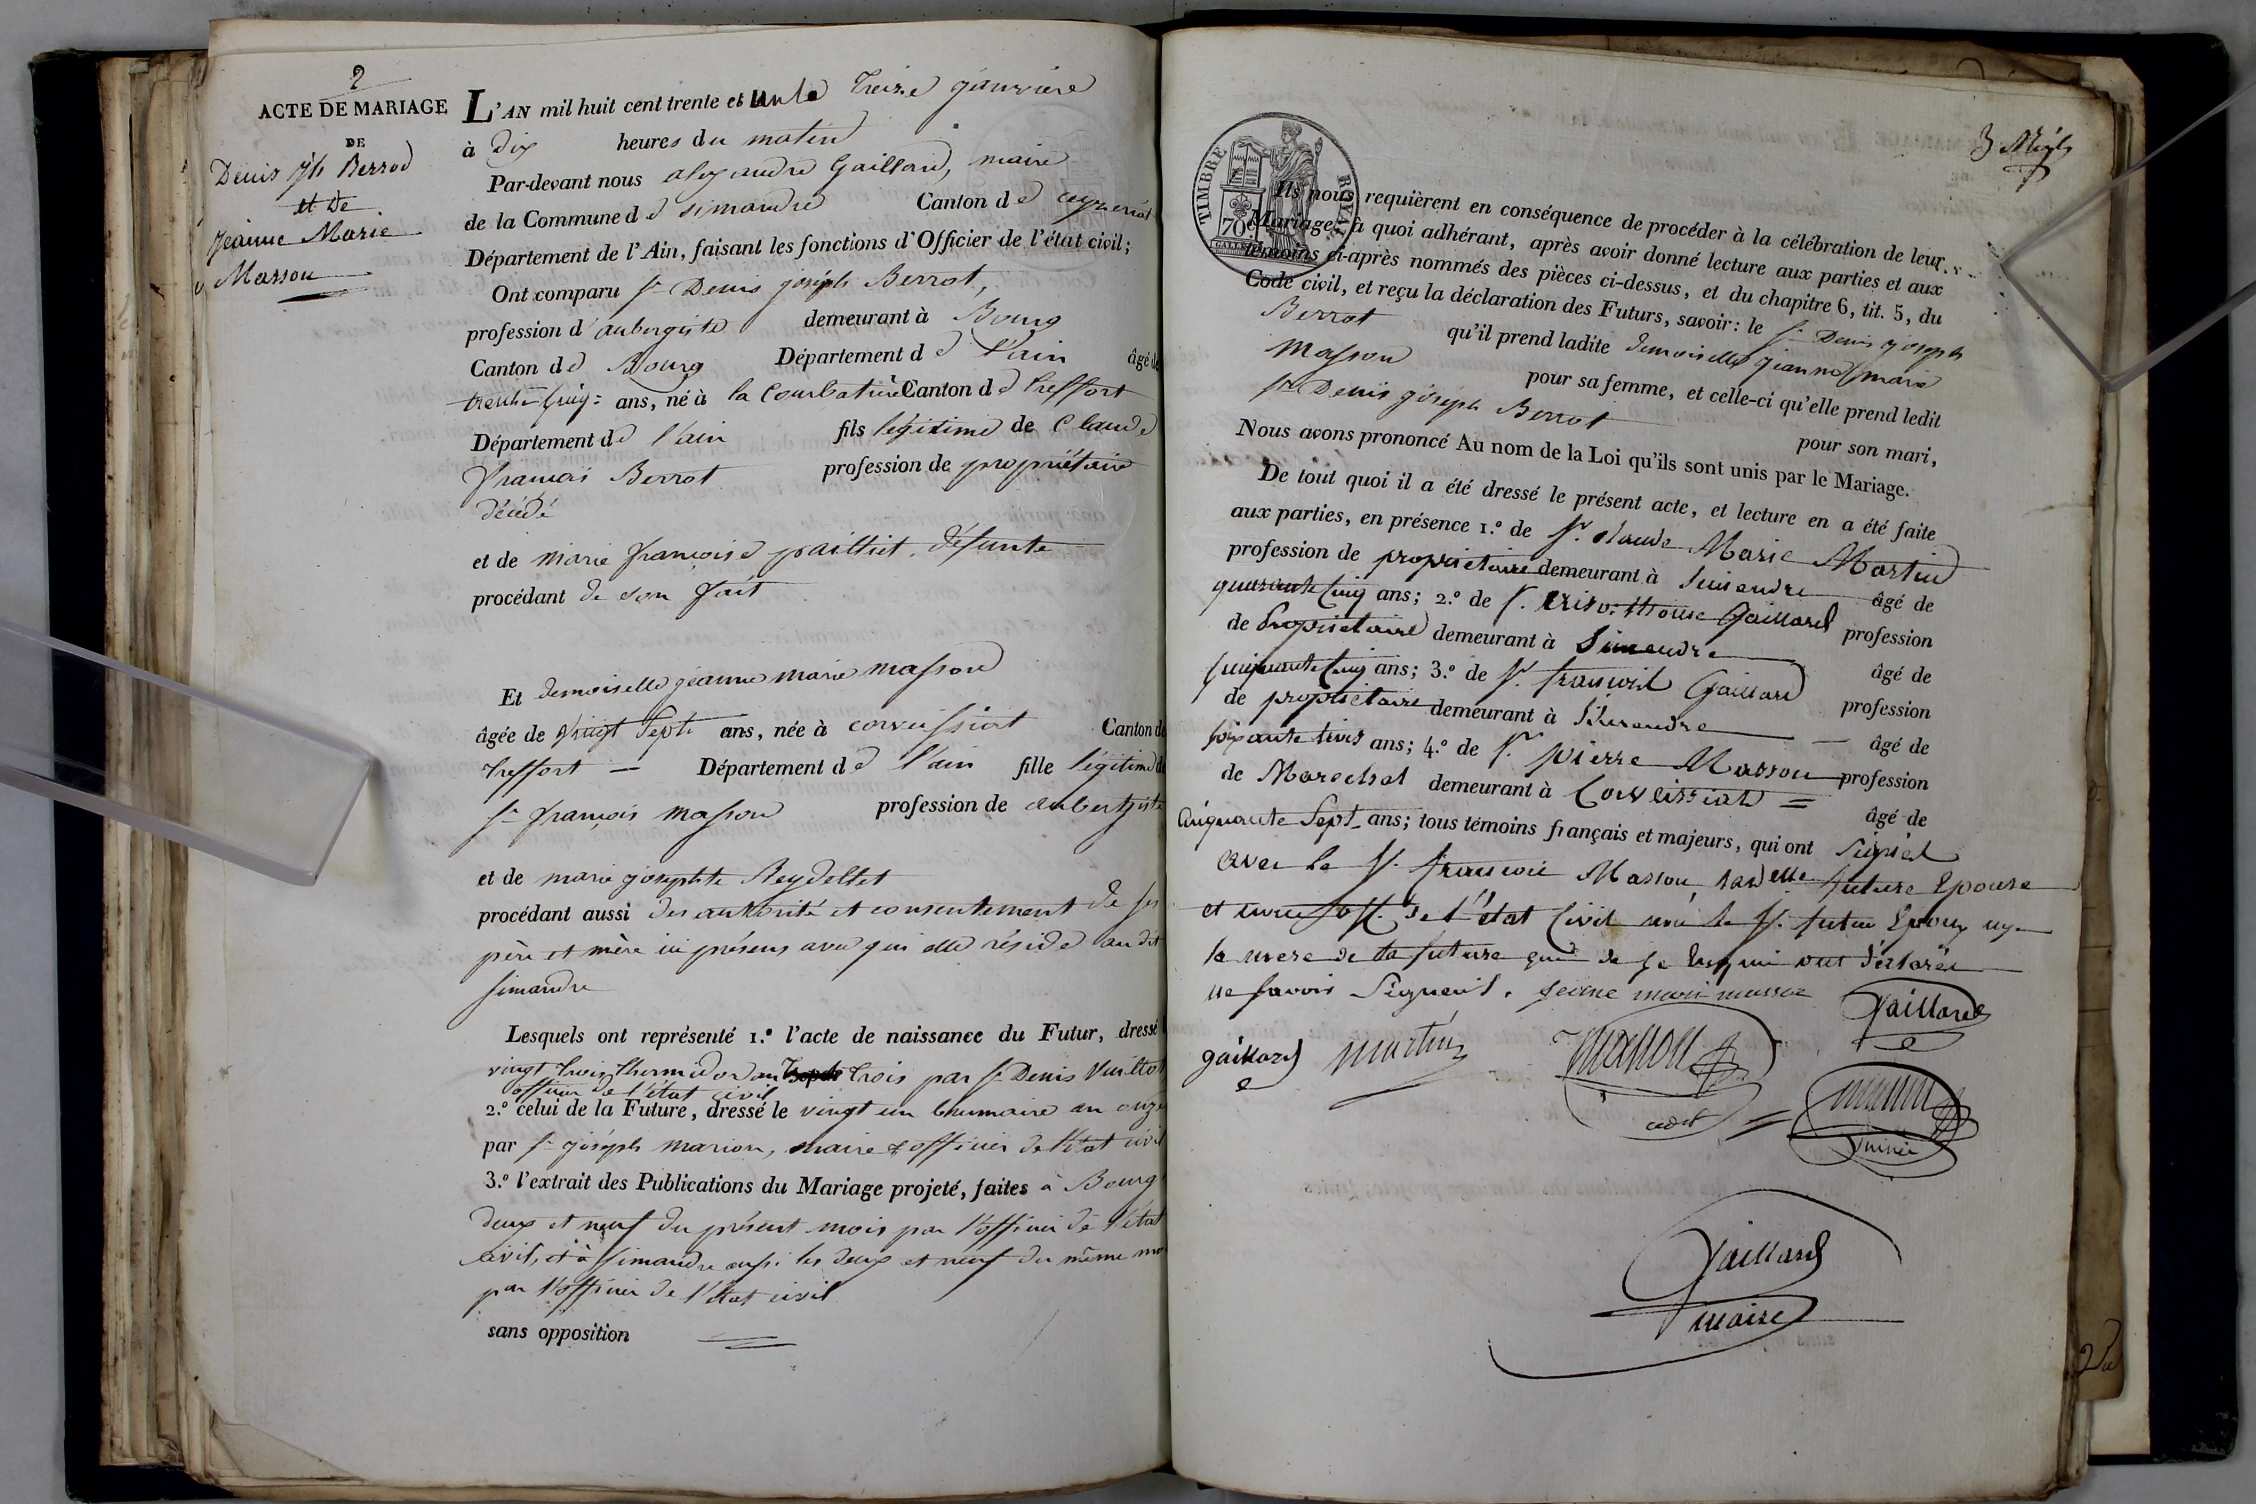 2
ACTE DE MARIAGE
DE
Denis Jh Berrod
et de
Jeanne Marie
Masson
L'AN mil huit cent trente et un le Treize janvière
à dix heures du matin
Par-devant nous alexandre Gaillard, maire
de la Commune de simandre Canton de ceyzeriat
Département de l'Ain, faisant les fonctions d'Officier de l'état civil;
Ont comparu sr Denis joséph Berrot,
profession d'aubergiste demeurant à Bourg
Canton de Bourg Département de l'ain âgé de
trente cinq ans, né à la Courbatière Canton de treffort
Département de l'ain fils légitime de Claude
françois Berrot profession de propriétaire
décédé
et de Marie françoise paillet défunte
procédant de son fait
Et demoiselle jeanne marie masson
âgée de vingt sept ans, née à corveissiat Canton de
treffort Département de l'ain fille légitime de
sr françois masson profession de aubergiste
et de marie josephte Reydellet
procédant aussi des autorité et consentement de ses
père et mère ici présens avec qui elle réside au dit
simandre
Lesquels ont représenté 1.º l'acte de naissance du Futur, dressé le
vingt trois thermidor an trois par sr Denis
officier de l'état civil
2.º celui de la Future, dressé le vingt un brumaire an onze
par sr joséph marion, maire & officier de l'état civil
3.º l'extrait des Publications du Mariage projeté, faites à Bourg
deux et neuf du présent mois par l'officier de l'état
civil, et à simandre aussi les deux et neuf du même mois
par l'officier de l'état civil
sans opposition
TIMBRE ROYAL
70
Ils nous requièrent en conséquence de procéder à la célébration de leur
Mariage; à quoi adhérant, après avoir donné lecture aux parties et aux
témoins ci-après nommés des pièces ci-dessus, et du chapitre 6, tit. 5, du
Code civil, et reçu la déclaration des Futurs, savoir: le sr Denis joseph
Berrot qu'il prend ladite demoiselle jeanne marie
masson pour sa femme, et celle-ci qu'elle prend ledit
sr Denis joséph Berrot pour son mari,
Nous avons prononcé Au nom de la Loi qu'ils sont unis par le Mariage.
De tout quoi il a été dressé le présent acte, et lecture en a été faite
aux parties, en présence 1.º de sr. claude Marie Martin
profession de propriétaire demeurant à Simandre âgé de
quarante cinq ans; 2.º de sr. Gaillard profession
de propriétaire demeurant à Simandre âgé de
cinquante cinq ans; 3.º de sr. francois Gaillard profession
de propriétaire demeurant à Simandre âgé de
soixante trois ans; 4.º de sr. pierre Masson profession
de Marechal demeurant à Corveissiat âgé de
cinquante Sept ans; tous témoins français et majeurs, qui ont Signé
avec le sr. francois Masson, future Epouse
et nous off. de l'état Civil non le sr. futur Epoux ny
la mere de la future de ce qui ont déclaré
ne savoir Signer. jeanne marie masson Gaillard
gaillard martin masson
cadet
Gaillard
maire